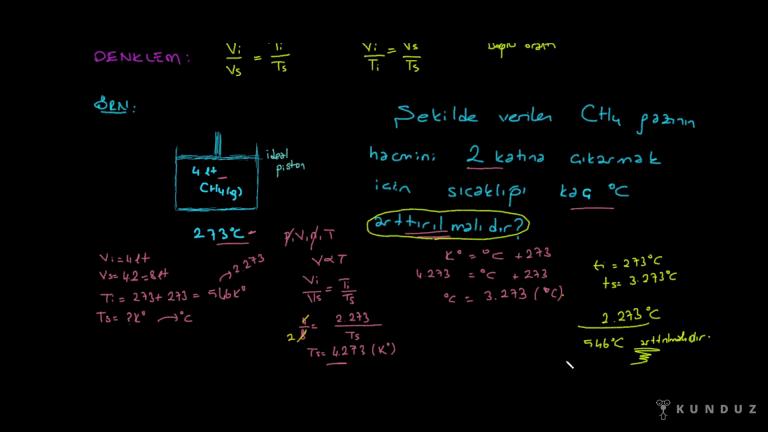 DENKLEM: Vi/Vs = Ti/Ts Vi/Ti = Vs/Ts
ÖRN: Şekilde verilen CH4 gazının
hacmini 2 katına çıkarmak
için sıcaklığı kaç °C
arttırılmalıdır?
ideal
piston
4 lt
CH4(g)
273°C
P, V, n, T
V ∝ T
Vi/Vs = Ti/Ts
4/8 = 2.273/Ts
Ts = 4.273 (K°)
Vi = 4 lt
Vs = 4.2 = 8 lt
Ti = 273 + 273 = 546 K° → 2.273
Ts = ?K° → °C
K° = °C + 273
4.273 = °C + 273
°C = 3.273 (°C)
ti = 273°C
ts = 3.273°C
2.273°C
546°C arttırılmalıdır.
KUNDUZ